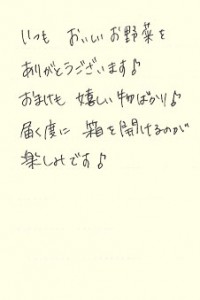 いつも おいしいお野菜を
ありがとうございます♪
おまけも 嬉しい物ばかり♪
届く度に 箱を開けるのが
楽しみです♪